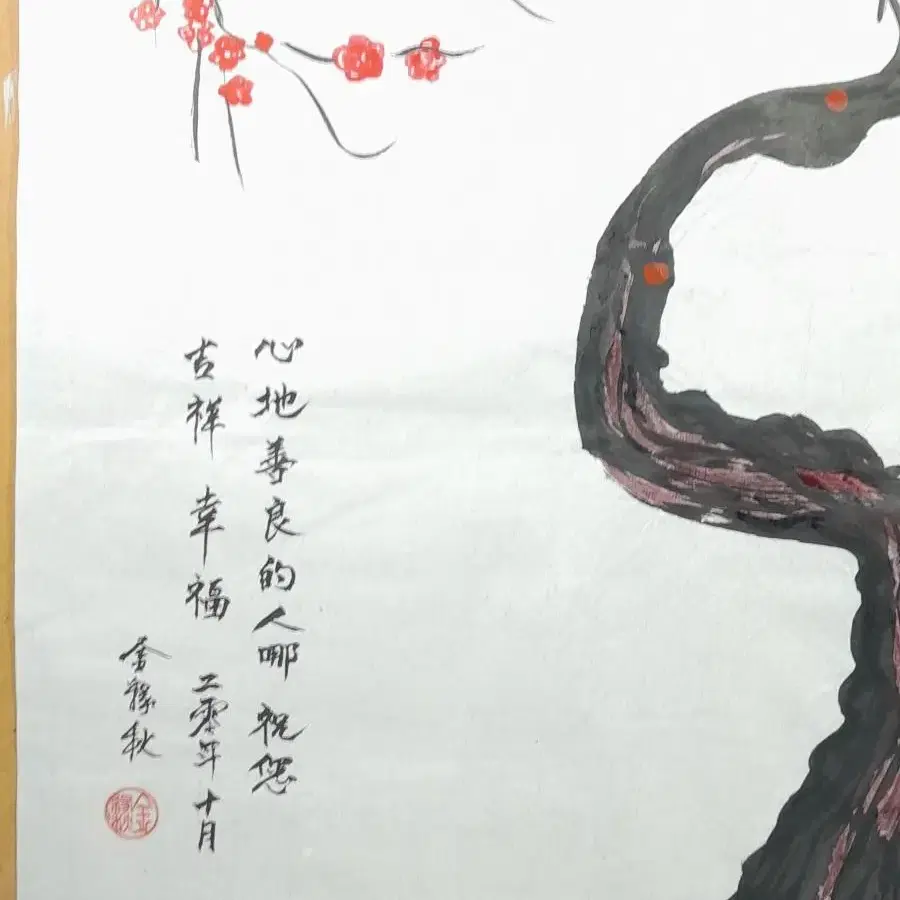 心地善良的人哪 祝您
吉祥 幸福 二零年十月
金秋